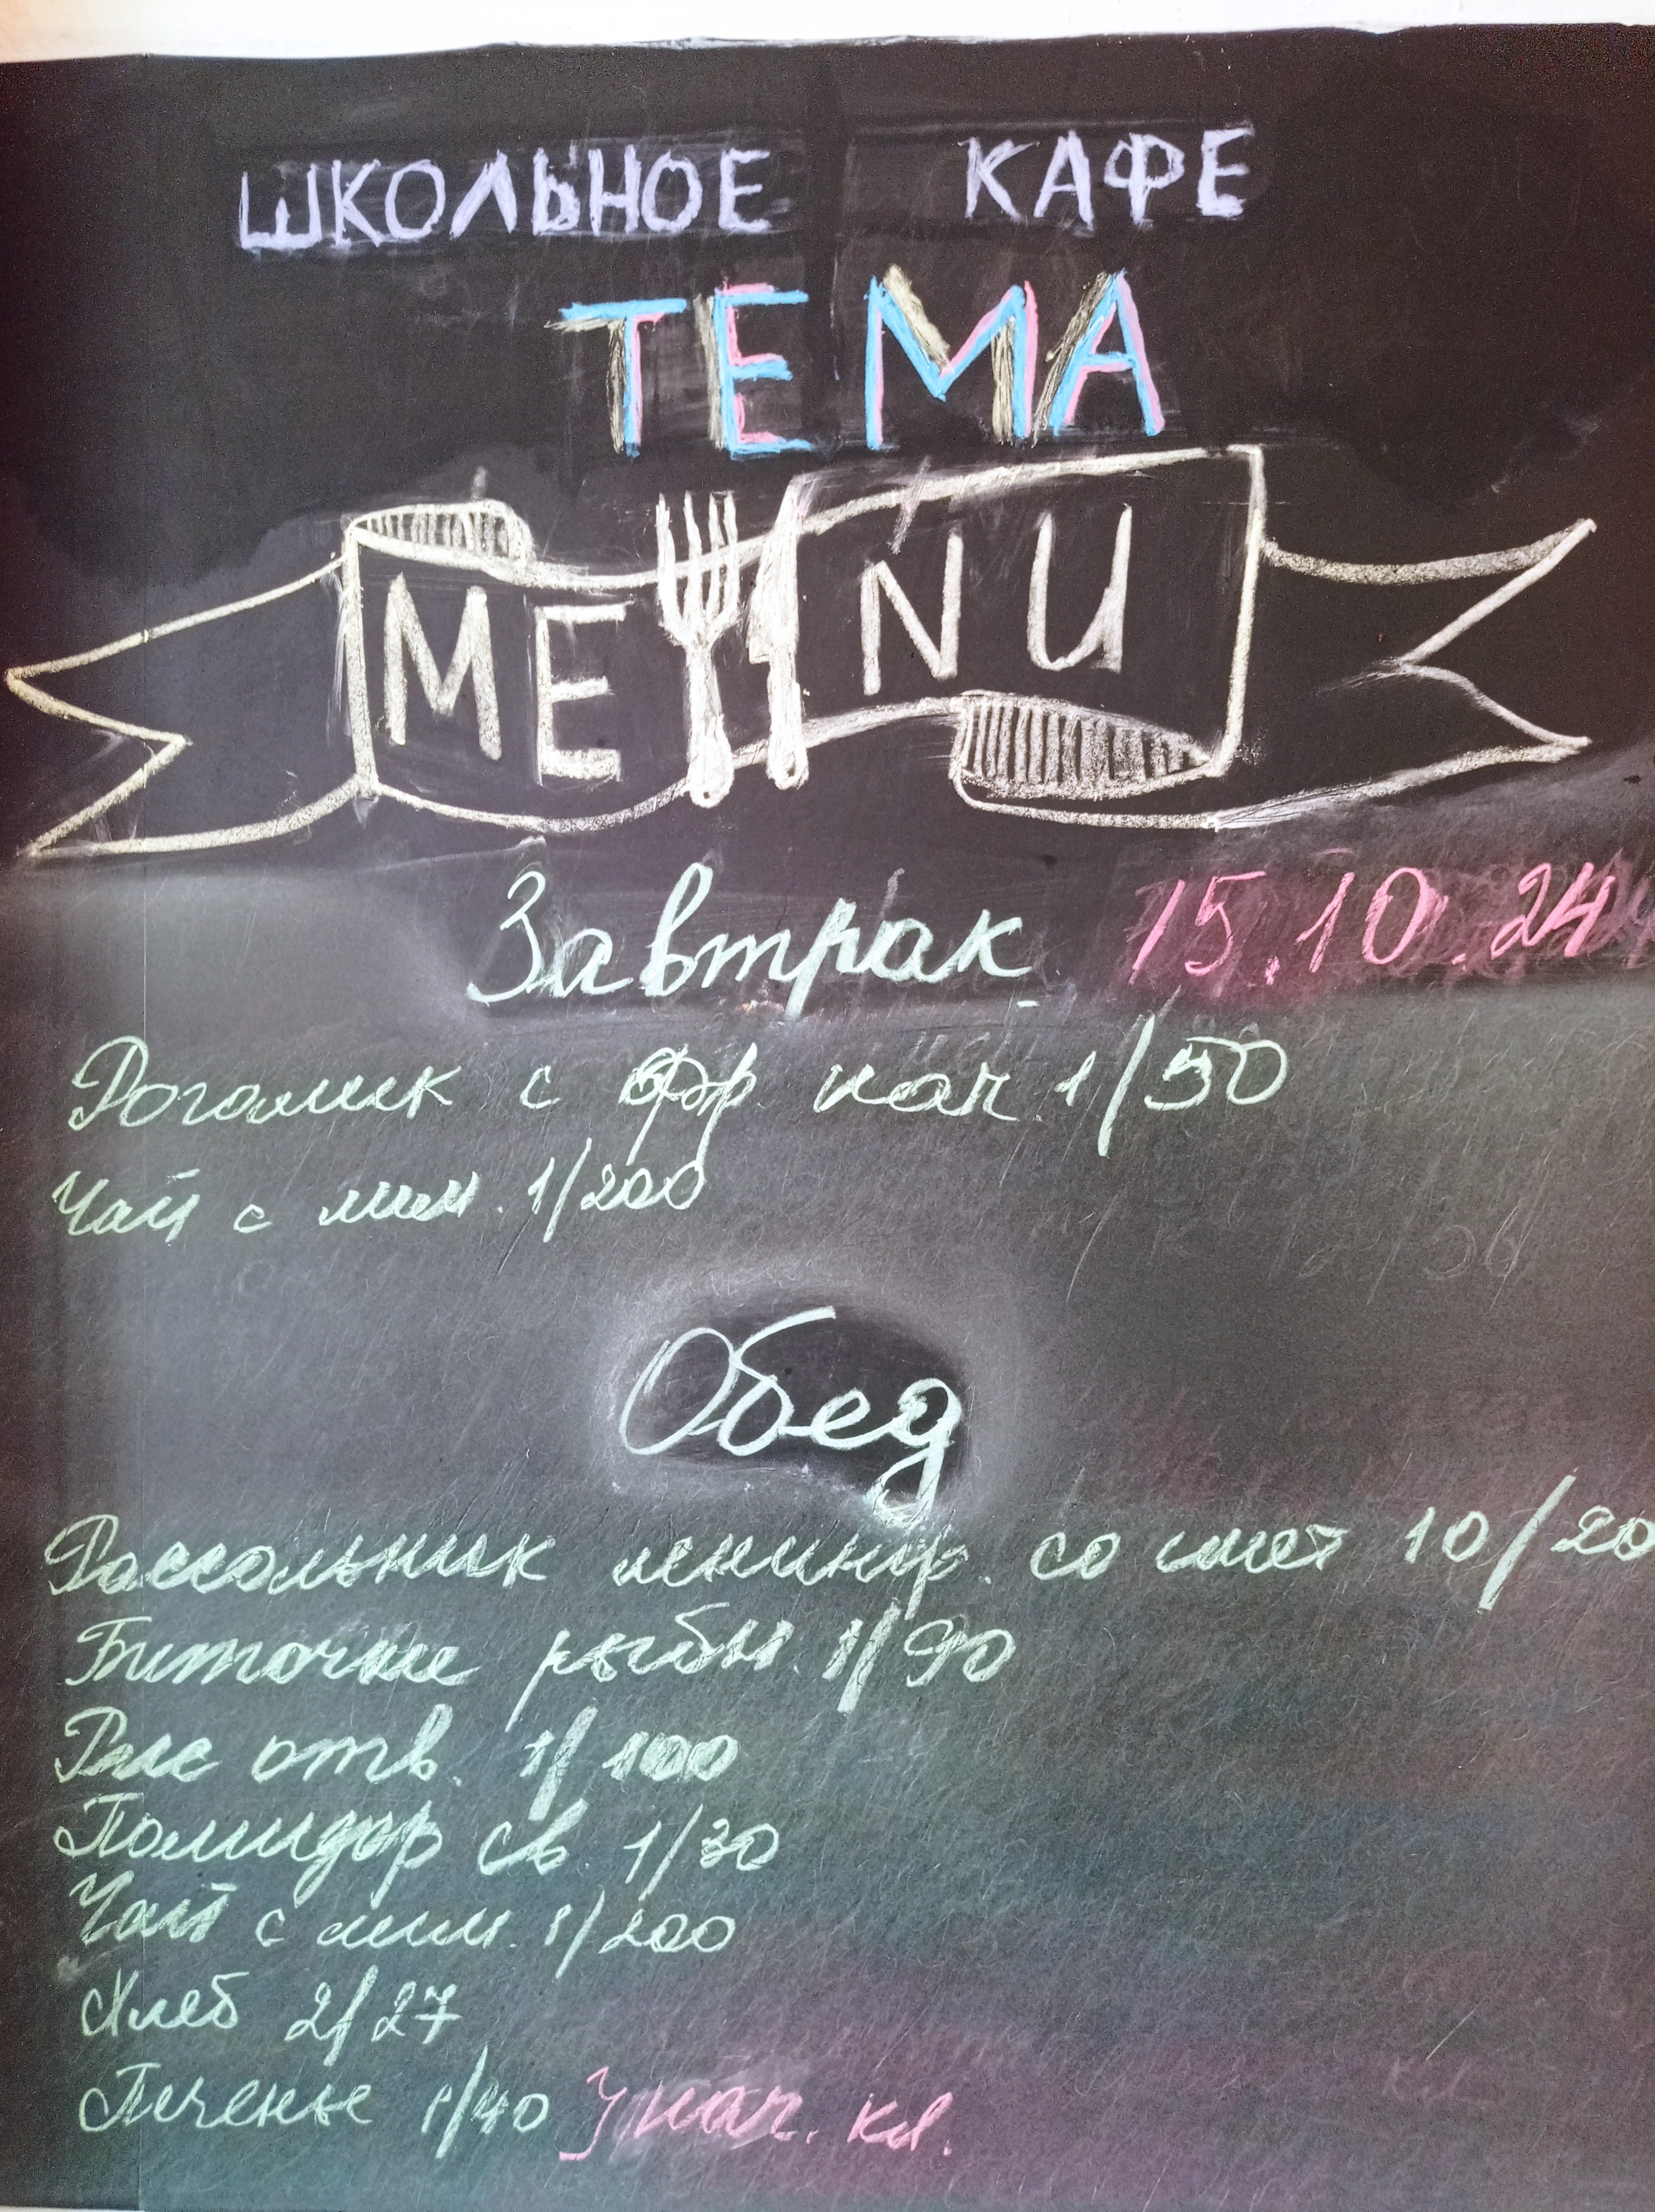 ШКОЛЬНОЕ КАФЕ
ТЕМА
MENU
Завтрак 15.10.24
Рогалик с фр. нач. 1/50
Чай с лим. 1/200
Обед
Рассольник ленингр. со смет 10/20
Биточки рыбн. 1/90
Рис отв. 1/100
Помидор св. 1/30
Чай с лим. 1/200
Хлеб 2/27
Печенье 1/40 } нач. кл.